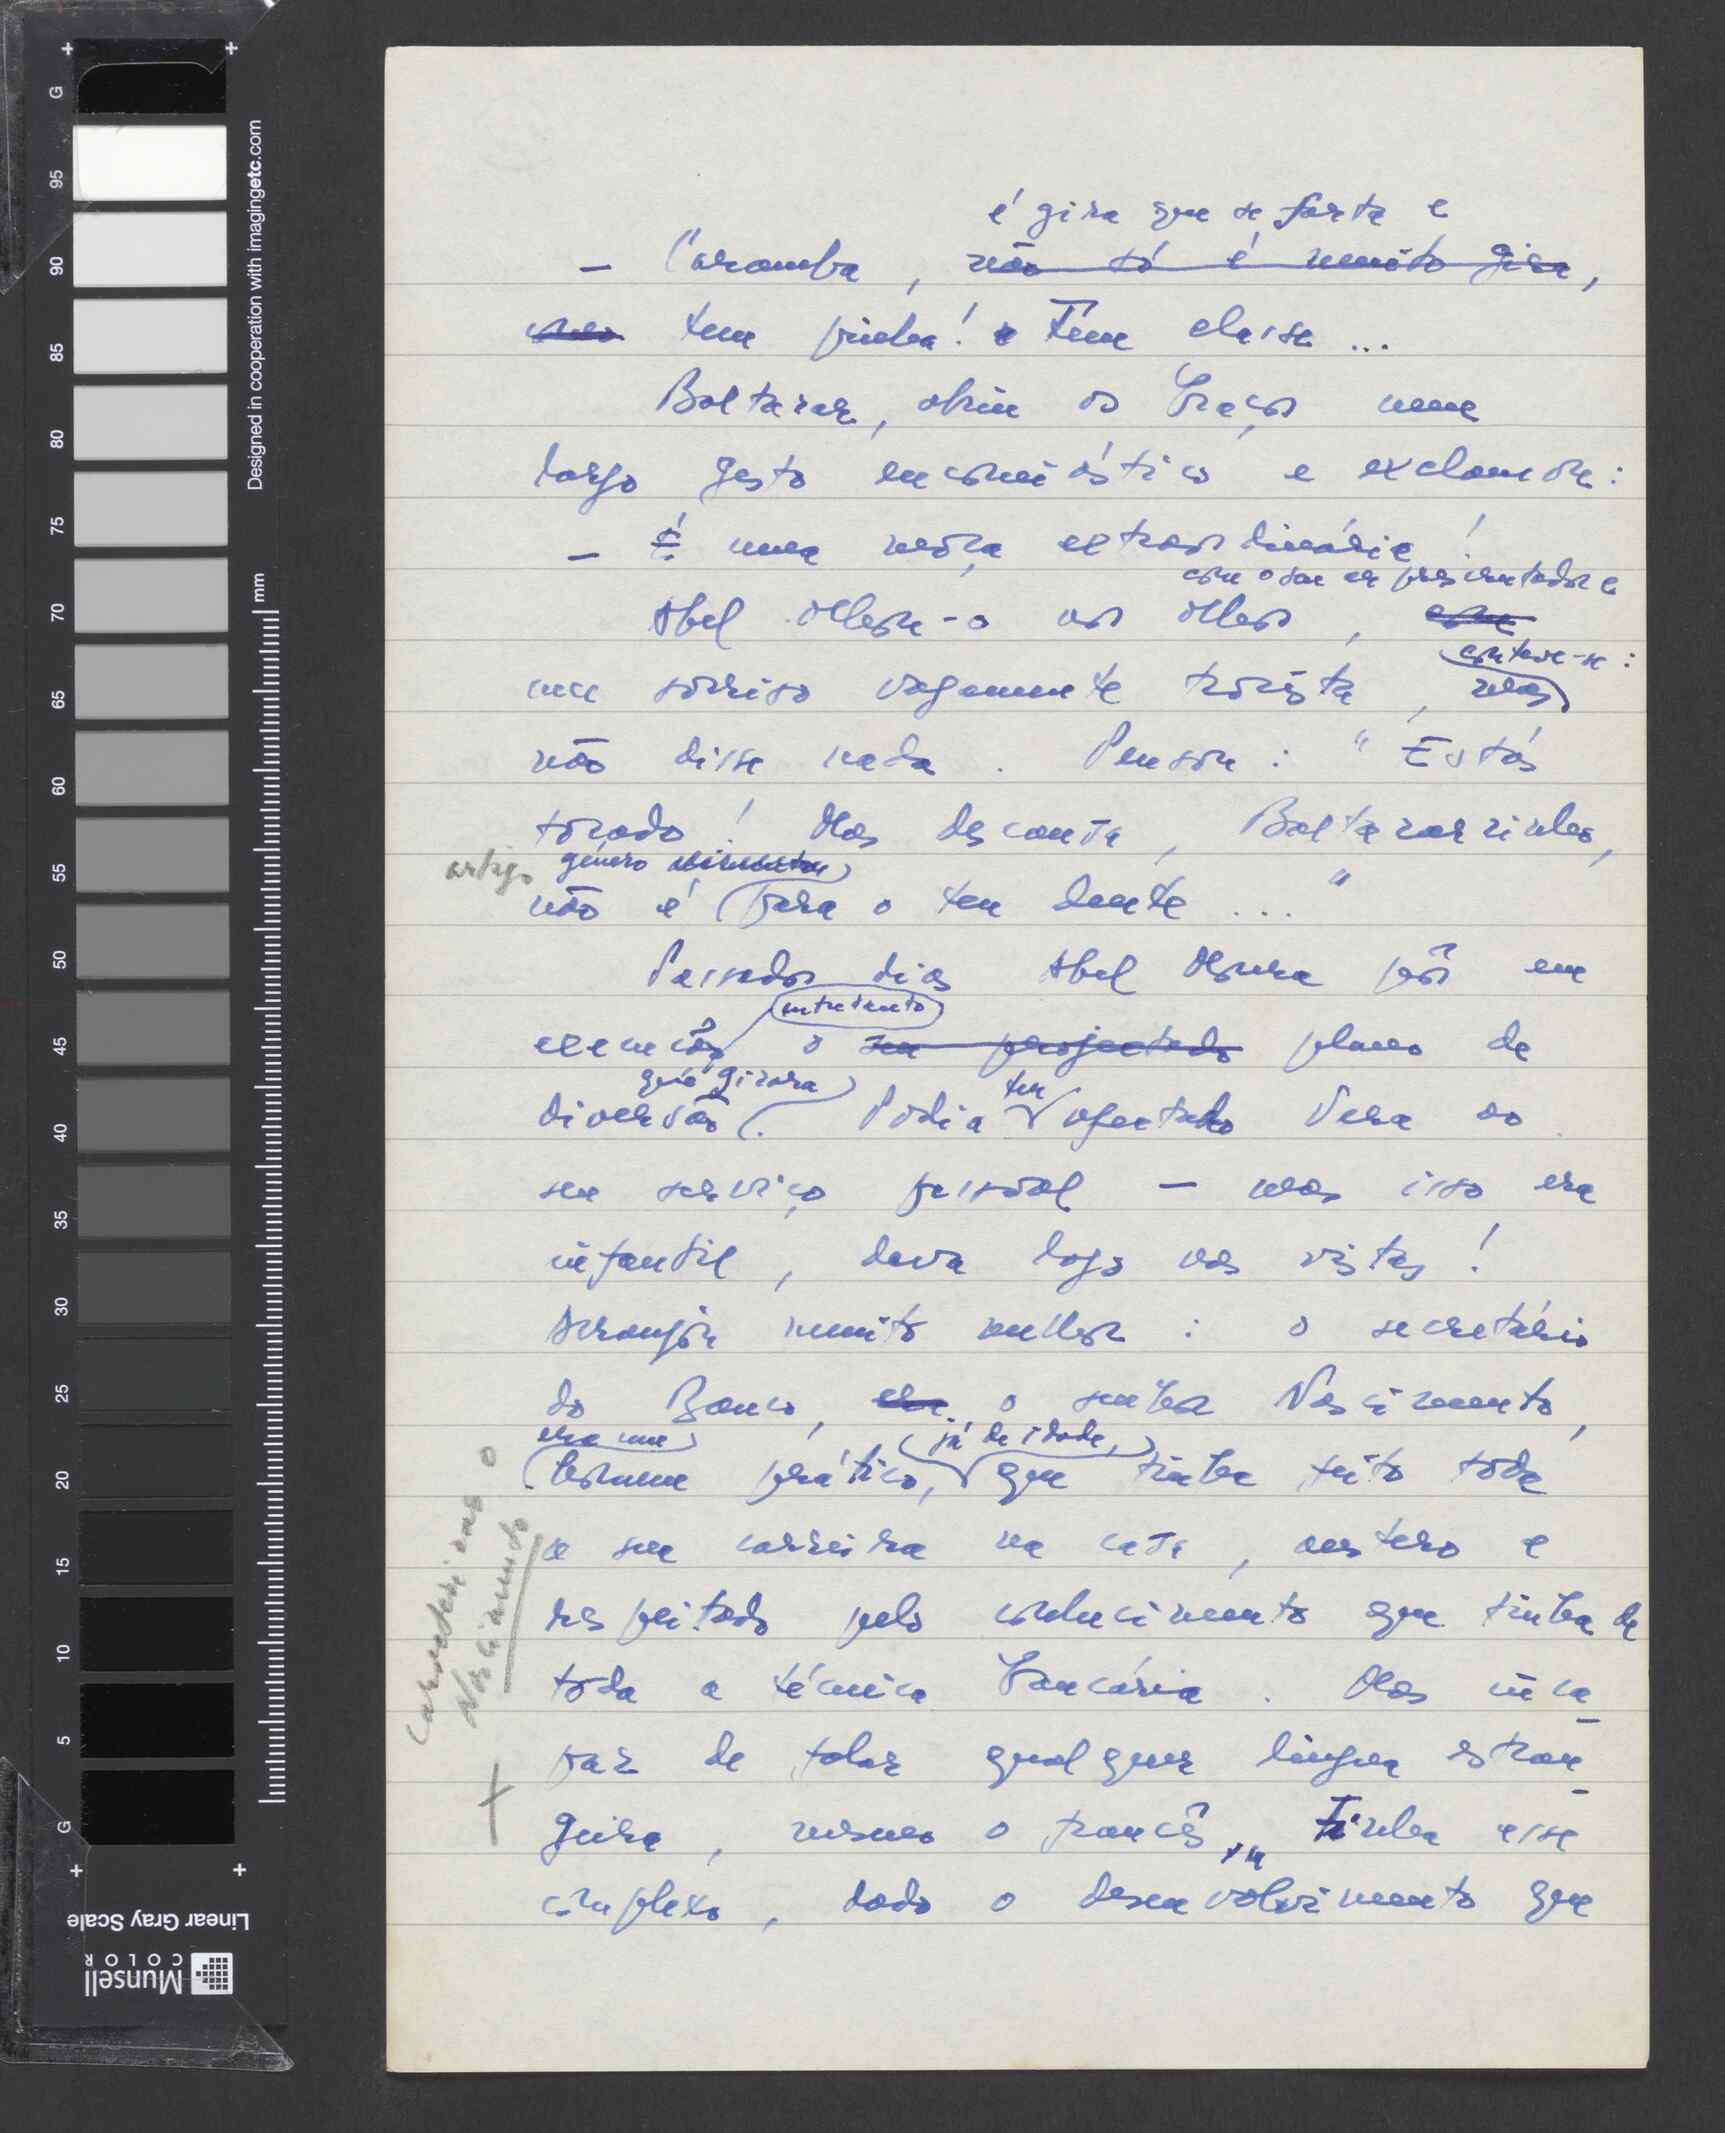 é gira que se farta e
— Caramba, não só é muito gira,
mas tem pinta! e Tem classe ...
Baltazar, abriu os braços num
largo gesto encomiástico e exclamou:
— É uma moça extraordinária!
com o seu ar
Abel olhou-o nos olhos, com
conteve-se:
um sorriso vagamente trocista, mas
não disse nada. Pensou: "Estás
tòrado! Mas descansa, Baltazarzinho,
artigo género
não é para o teu dente ..."
Passados dias Abel Moura pôs em
entretanto
execução o seu projectado plano de
que gizara ter
diversão. Podia afectado Vera ao
seu serviço pessoal — mas isso era
infantil, dava logo nas vistas!
Arranjou muito melhor: o secretário
do Banco, era o senhor Nascimento,
era um já de idade,
homem prático, que tinha feito toda
a sua carreira na casa, austero e
respeitado pelo conhecimento que tinha de
toda a técnica bancária. Mas inca-
paz de falar qualquer língua estran-
geira, mesmo o francês, Tinha esse
complexo, dado o desenvolvimento que
caracterizar o
Nascimento
Designed in cooperation with imagingetc.com
mm
G
95
90
85
80
75
70
65
60
55
50
45
40
35
30
25
20
15
10
5
G
Linear Gray Scale
Munsell
COLOR